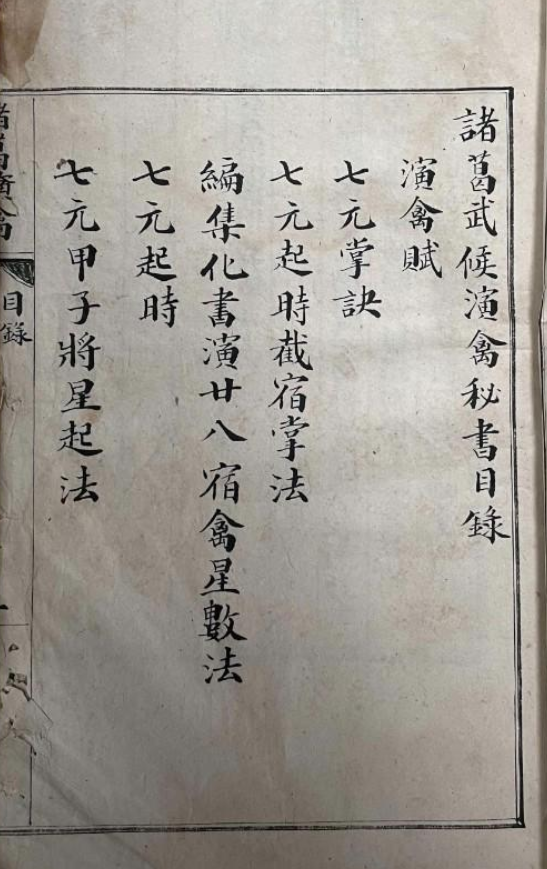 諸葛武候演禽秘書目錄
演禽賦
七元掌訣
七元起時截宿掌法
編集化書演廿八宿禽星數法
七元起時
七元甲子將星起法
目錄